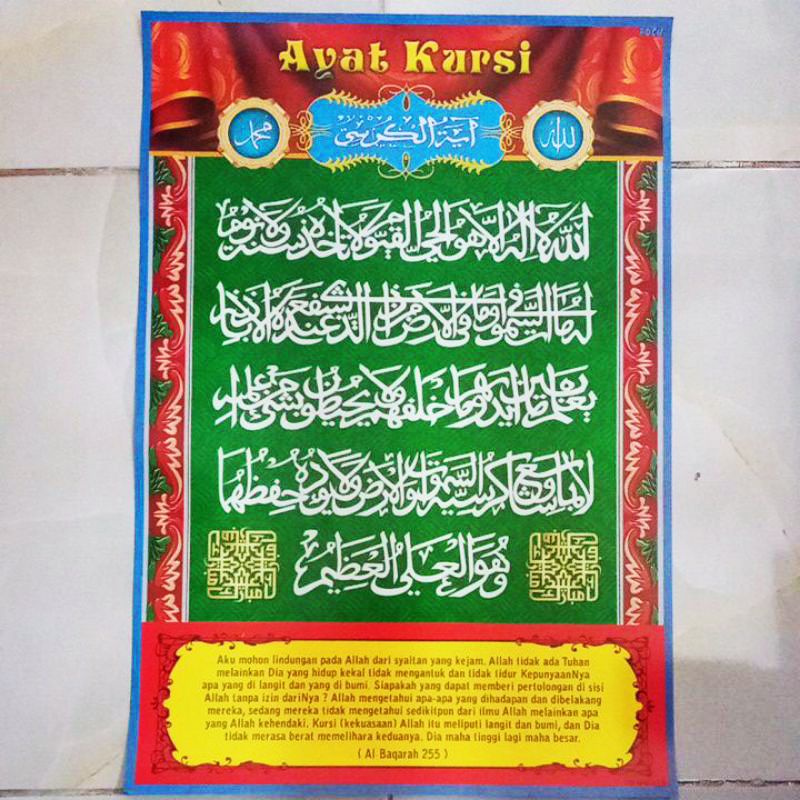 Ayat Kursi
الله
آية الكرسي
محمد
الله لا إله إلا هو الحي القيوم لا تأخذه سنة ولا نوم
له ما في السموات وما في الأرض من ذا الذي يشفع عنده إلا بإذنه
يعلم ما بين أيديهم وما خلفهم ولا يحيطون بشيء من علمه إ
لا بما شاء وسع كرسيه السموات والأرض ولا يؤده حفظهما
وهو العلي العظيم
Aku mohon lindungan pada Allah dari syaitan yang kejam. Allah tidak ada Tuhan
melainkan Dia yang hidup kekal tidak mengantuk dan tidak tidur KepunyaanNya
apa yang di langit dan yang di bumi. Siapakah yang dapat memberi pertolongan di sisi
Allah tanpa izin dariNya ? Allah mengetahui apa-apa yang dihadapan dan dibelakang
mereka, sedang mereka tidak mengetahui sedikitpun dari ilmu Allah melainkan apa
yang Allah kehendaki. Kursi (kekuasaan) Allah itu meliputi langit dan bumi, dan Dia
tidak merasa berat memelihara keduanya. Dia maha tinggi lagi maha besar.
( Al Baqarah 255 )